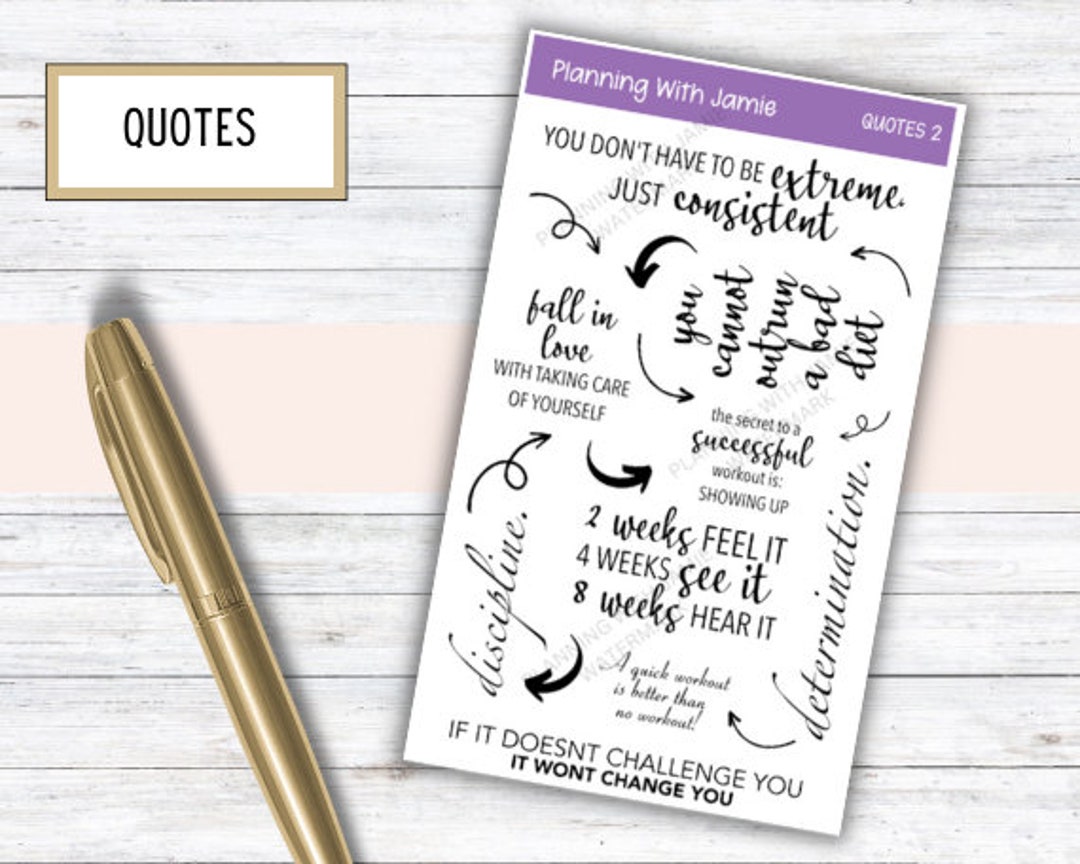 QUOTES
Planning With Jamie
QUOTES 2
YOU DON'T HAVE TO BE extreme.
JUST consistent
you
cannot
outrun
a bad
diet
fall in
love
WITH TAKING CARE
OF YOURSELF
the secret to a
successful
workout is:
SHOWING UP
2 weeks FEEL IT
4 WEEKS see it
8 weeks HEAR IT
discipline.
determination.
A quick workout
is better than
no workout!
IF IT DOESNT CHALLENGE YOU
IT WONT CHANGE YOU
PLANNING WITH JAMIE
WATERMARK
PLANNING WITH JAMIE
WATERMARK
PLANNING WITH JAMIE
WATERMARK